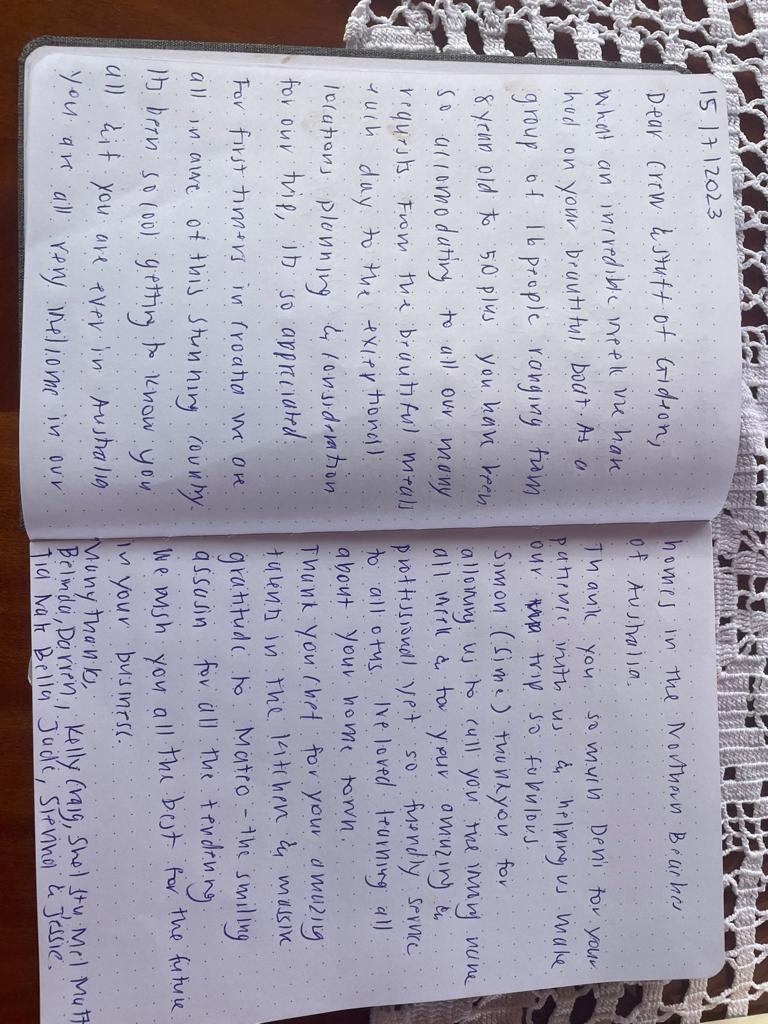 15/7/2023
Dear Crew & staff of Gideon,
What an incredible week we have
had on your beautiful boat. As a
group of 16 people ranging from
8 year old to 50 plus you have been
so accomodating to all our many
requests from the beautiful meals
each day to the exceptional
locations planning & consideration
for our trip, its so appreciated
For first timers in Croatia we are
all in awe of this stunning country.
Its been so cool getting to know you
all & if you are ever in Australia
you are all very wellcome in our
homes in the Northern Beaches
of Australia.
Thank you so much Deni for your
patience with us & helping us make
our trip so fabulous.
Simon (Sime) thankyou for
allowing us to call you the wrong name
all week & for your amazing &
proffessional yet so friendly service
to all of us. We loved learning all
about your home town.
Thank you chef for your amazing
talents in the kitchen & massive
gratitude to Mateo - the smiling
assasin for all the tendering
We wish you all the best for the future
in your business.
Many thanks,
Belinda, Darren, Kelly Craig, Shal Stu Mel Matt
Tia Nate Bella Jude, Sienna & Jessie.